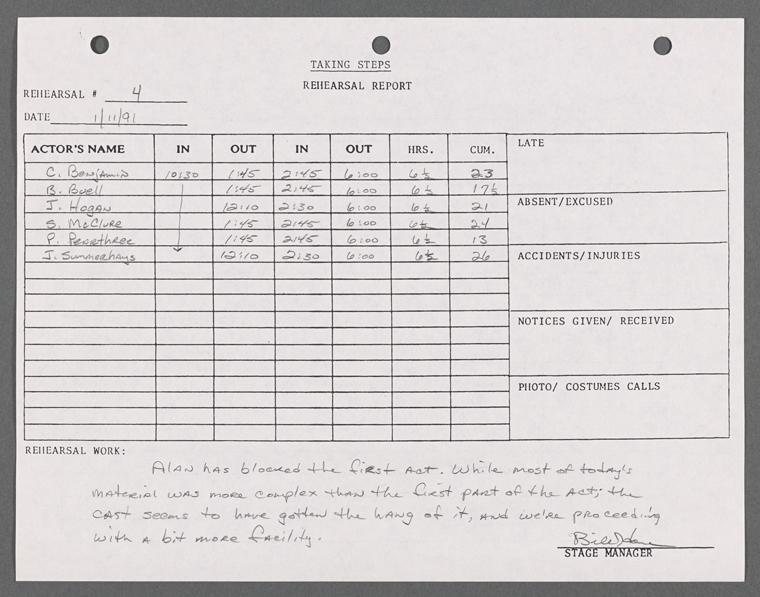 TAKING STEPS
REHEARSAL REPORT
REHEARSAL # 4
DATE 1/11/91
ACTOR'S NAME IN OUT IN OUT HRS. CUM. LATE
C. Benjamin 10:30 1:45 2:45 6:00 6½ 23
B. Buell 1:45 2:45 6:00 6½ 17½
J. Hogan 12:10 2:30 6:00 6½ 21
S. McClure 1:45 2:45 6:00 6½ 24
P. Penethree 1:45 2:45 6:00 6½ 13
J. Summerhays 12:10 2:30 6:00 6½ 26
ABSENT/EXCUSED
ACCIDENTS/INJURIES
NOTICES GIVEN/ RECEIVED
PHOTO/ COSTUMES CALLS
REHEARSAL WORK:
Alan has blocked the first act. While most of today's
material was more complex than the first part of the act; the
cast seems to have gotten the hang of it, and we're proceeding
with a bit more facility.
STAGE MANAGER